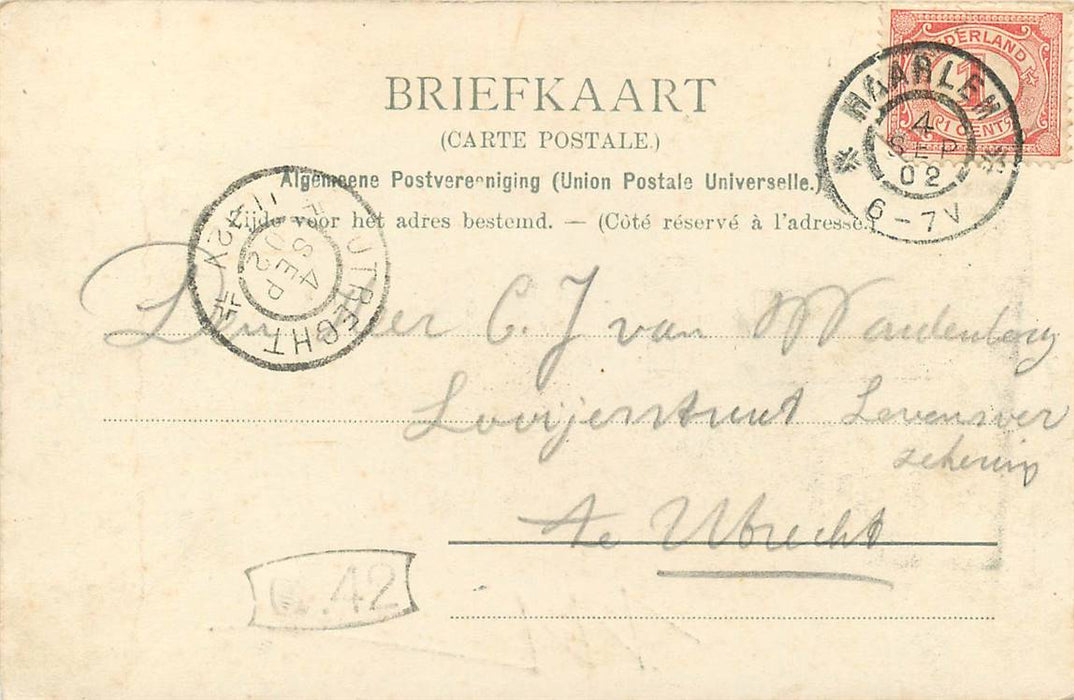 NEDERLAND
1
1 CENT
HAARLEM
4
SEP
02
6-7V
BRIEFKAART
(CARTE POSTALE.)
Algemeene Postvereeniging (Union Postale Universelle.)
Zijde voor het adres bestemd. — (Côté réservé à l'adresse.)
UTRECHT
4
SEP
02
C. J van Wardenburg
Looijerstraat Levensver
zekering
te Utrecht
42